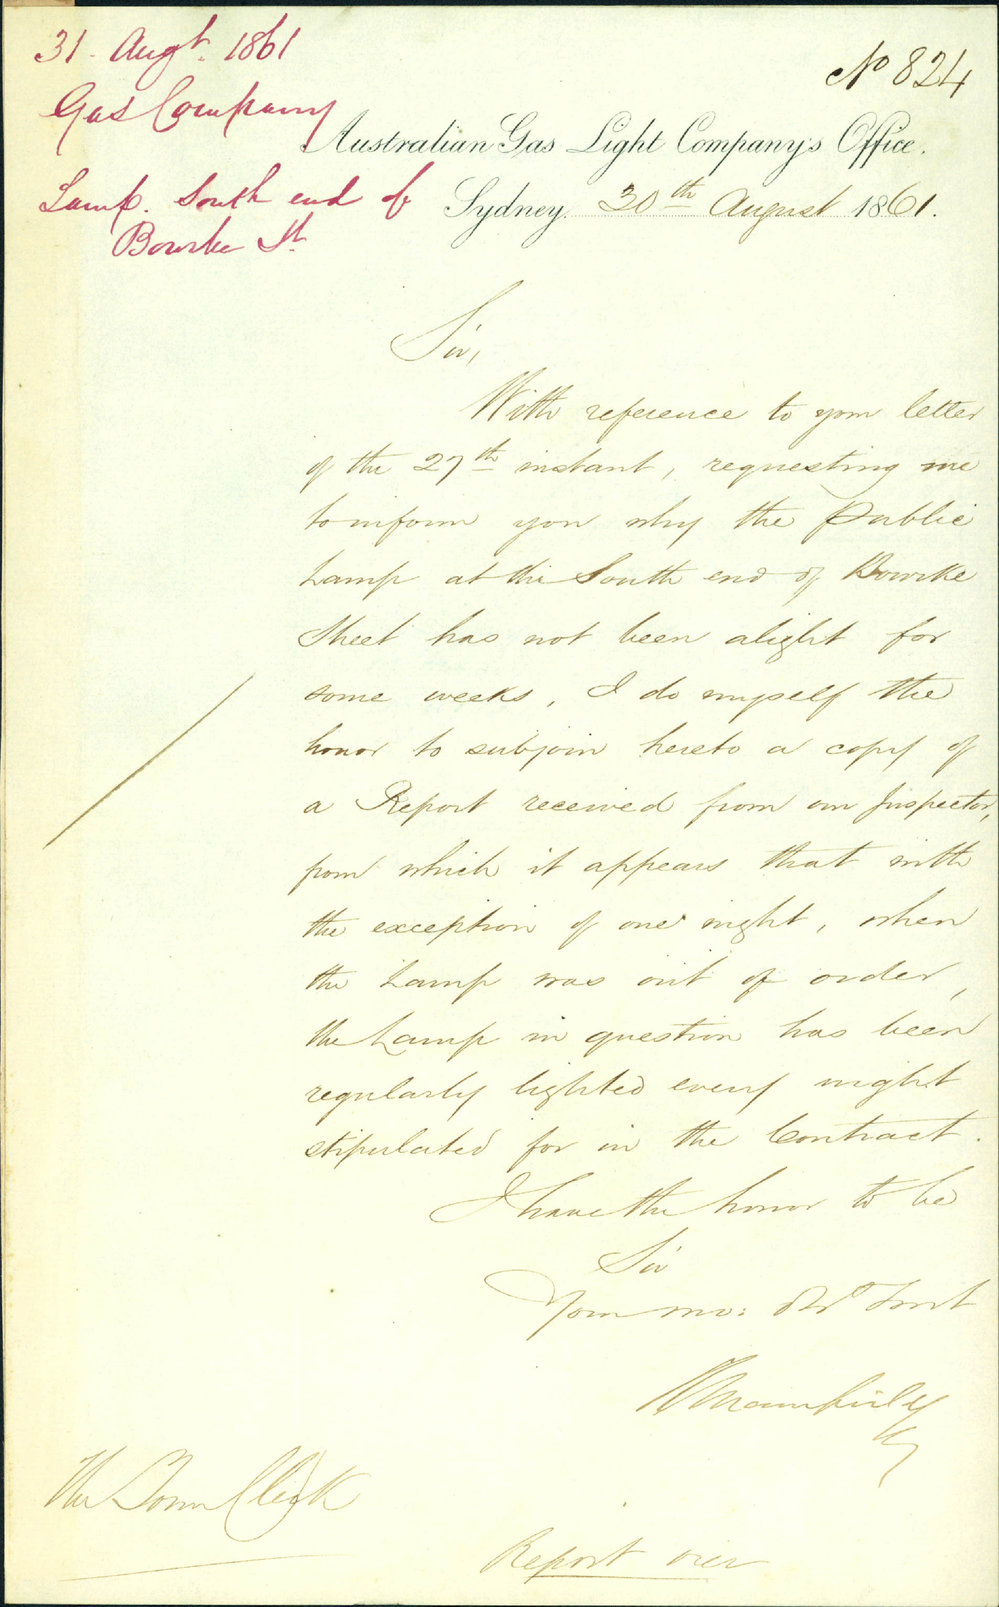 31 Augt. 1861
Gas Company
Lamp. South end of
Bourke St
No 824
Australian Gas Light Company's Office.
Sydney. 30th August 1861.
Sir,
With reference to your letter
of the 27th instant, requesting me
to inform you why the Public
Lamp at the South end of Bourke
Street has not been alight for
some weeks, I do myself the
honor to subjoin hereto a copy of
a Report received from our Inspector,
from which it appears that with
the exception of one night, when
the Lamp was out of order,
the Lamp in question has been
regularly lighted every night
stipulated for in the Contract.
I have the honor to be
Sir
Your mo: obt Servt
The Town Clerk
Report over